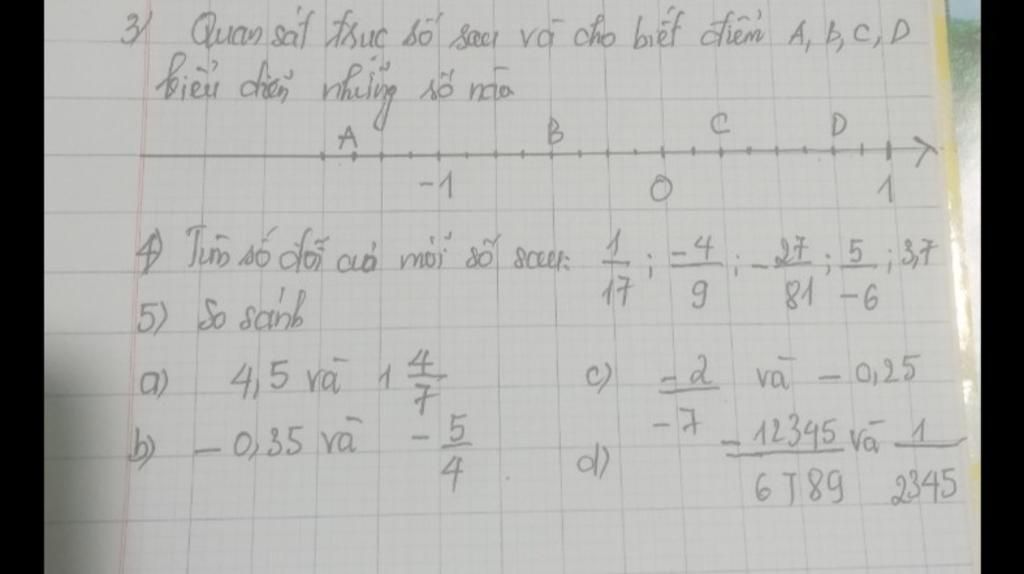 3) Quan sát trục số sau và cho biết điểm A, B, C, D
biểu diễn những số nào
A B C D
-1 0 1
4) Tìm số đối của mỗi số sau: 1/17 ; -4/9 ; -27/81 ; 5/-6 ; 3,7
5) So sánh
a) 4,5 và 1 4/7 c) -2/-7 và - 0,25
b) - 0,35 và -5/4 d) -12345/6789 và 1/2345